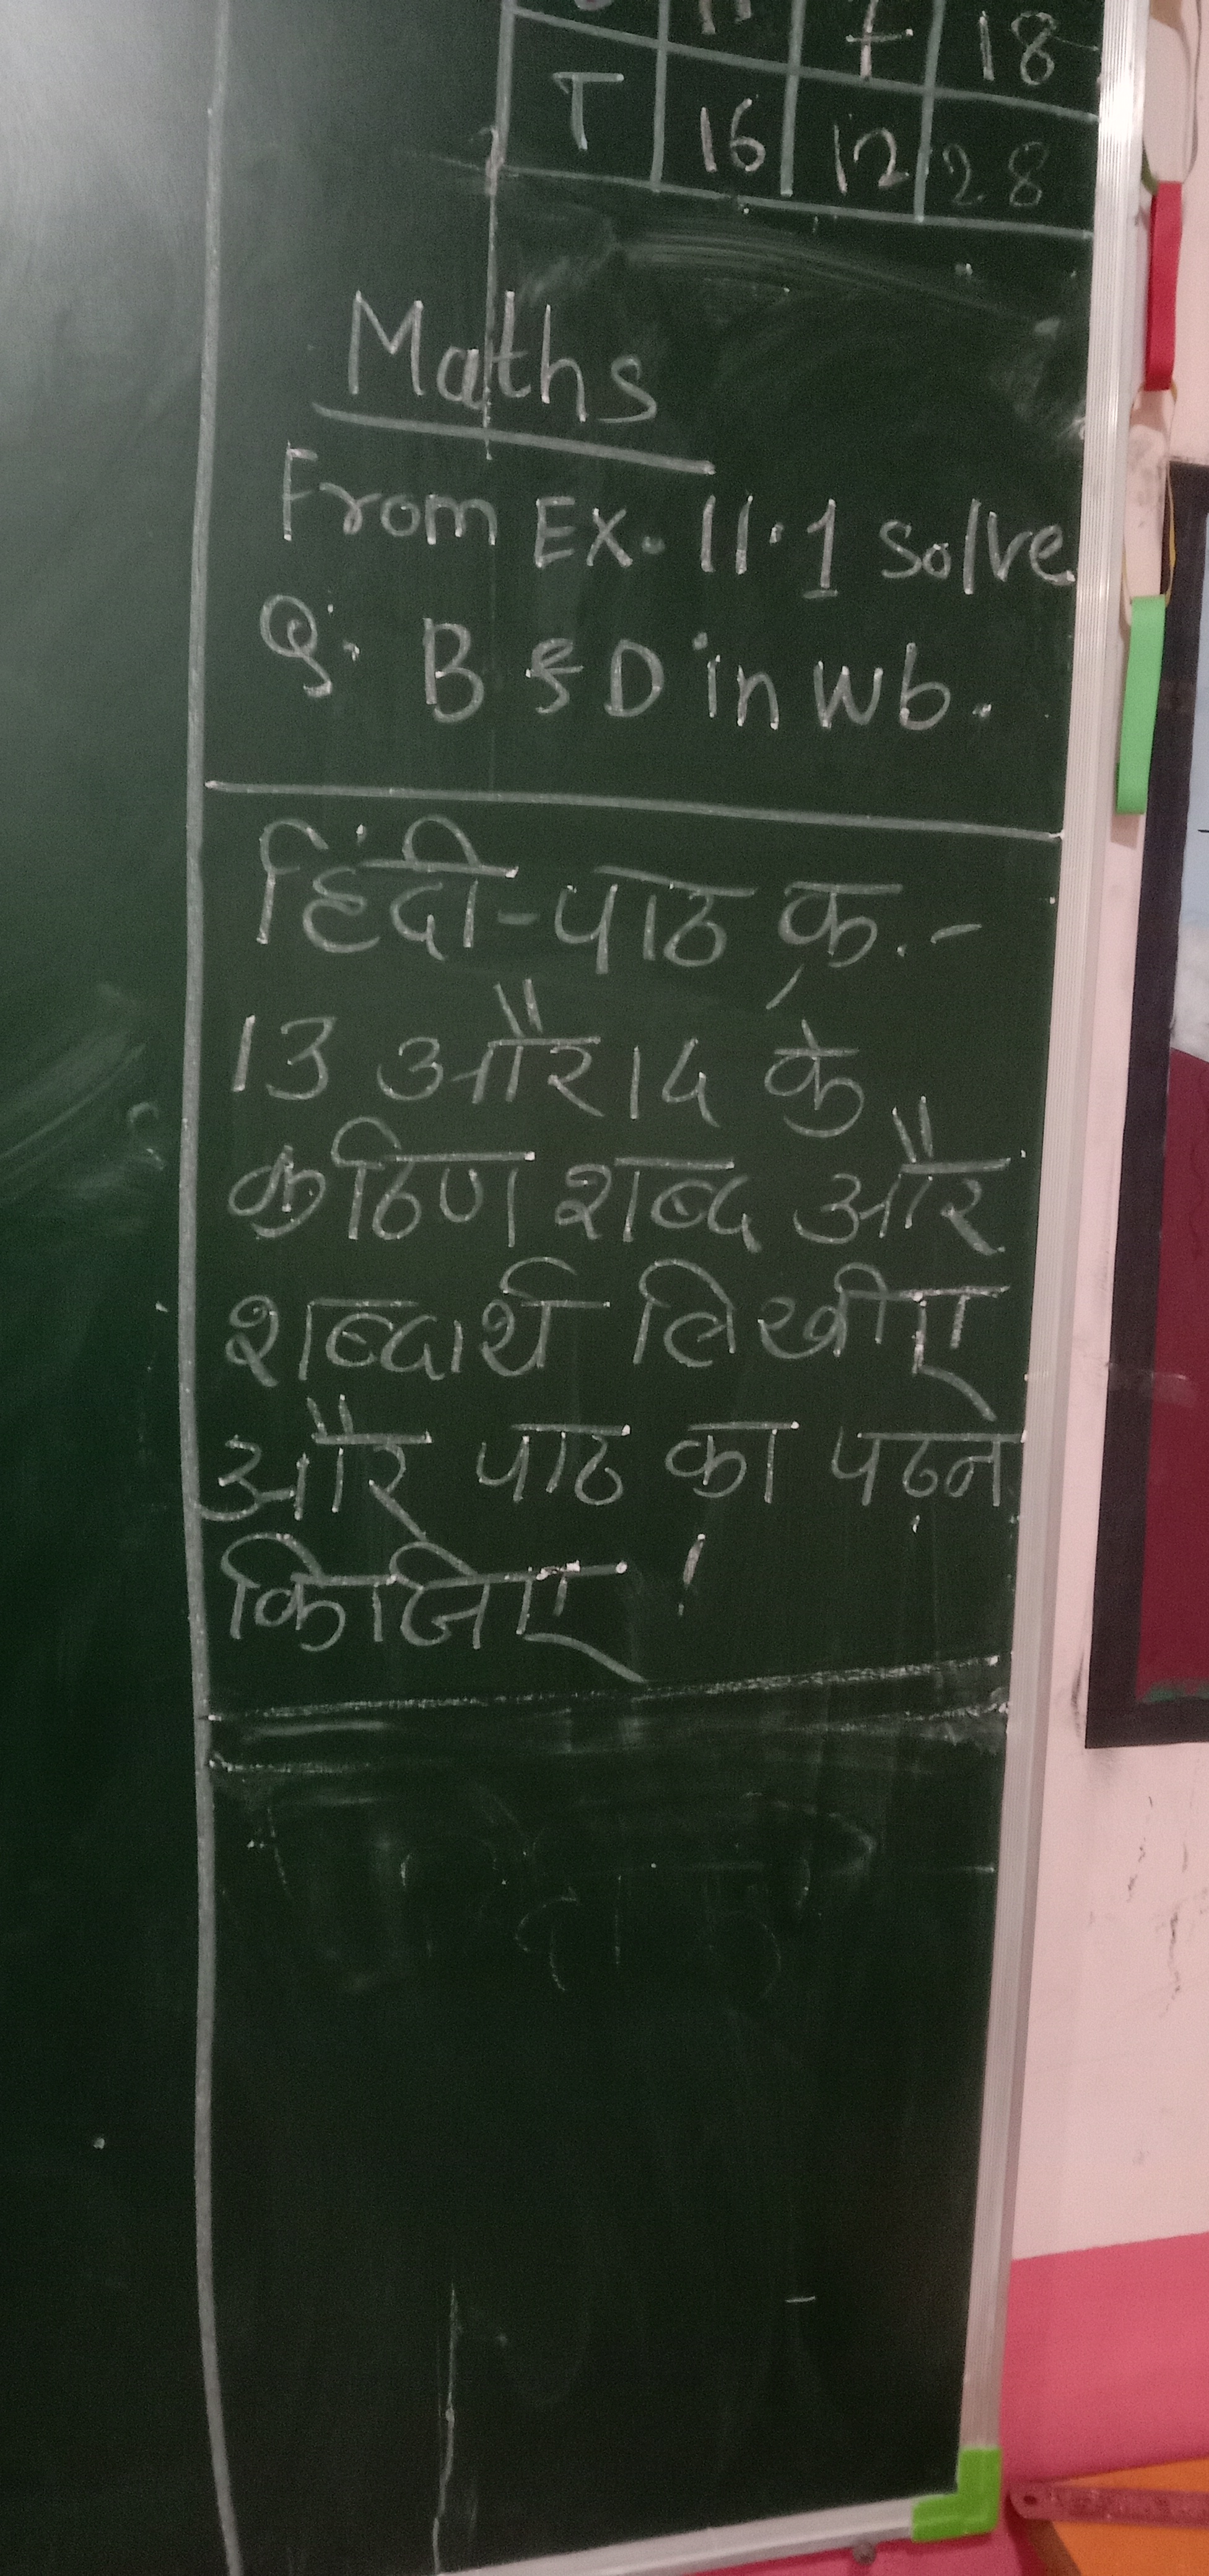 11 7 18
T 16 12 28
Maths
From Ex. 11.1 Solve
Q. B & D in Wb.
हिंदी-पाठ क्र.-
13 और 14 के
कठिण शब्द और
शब्दार्थ लिखीए
और पाठ का पढन
किजिए !